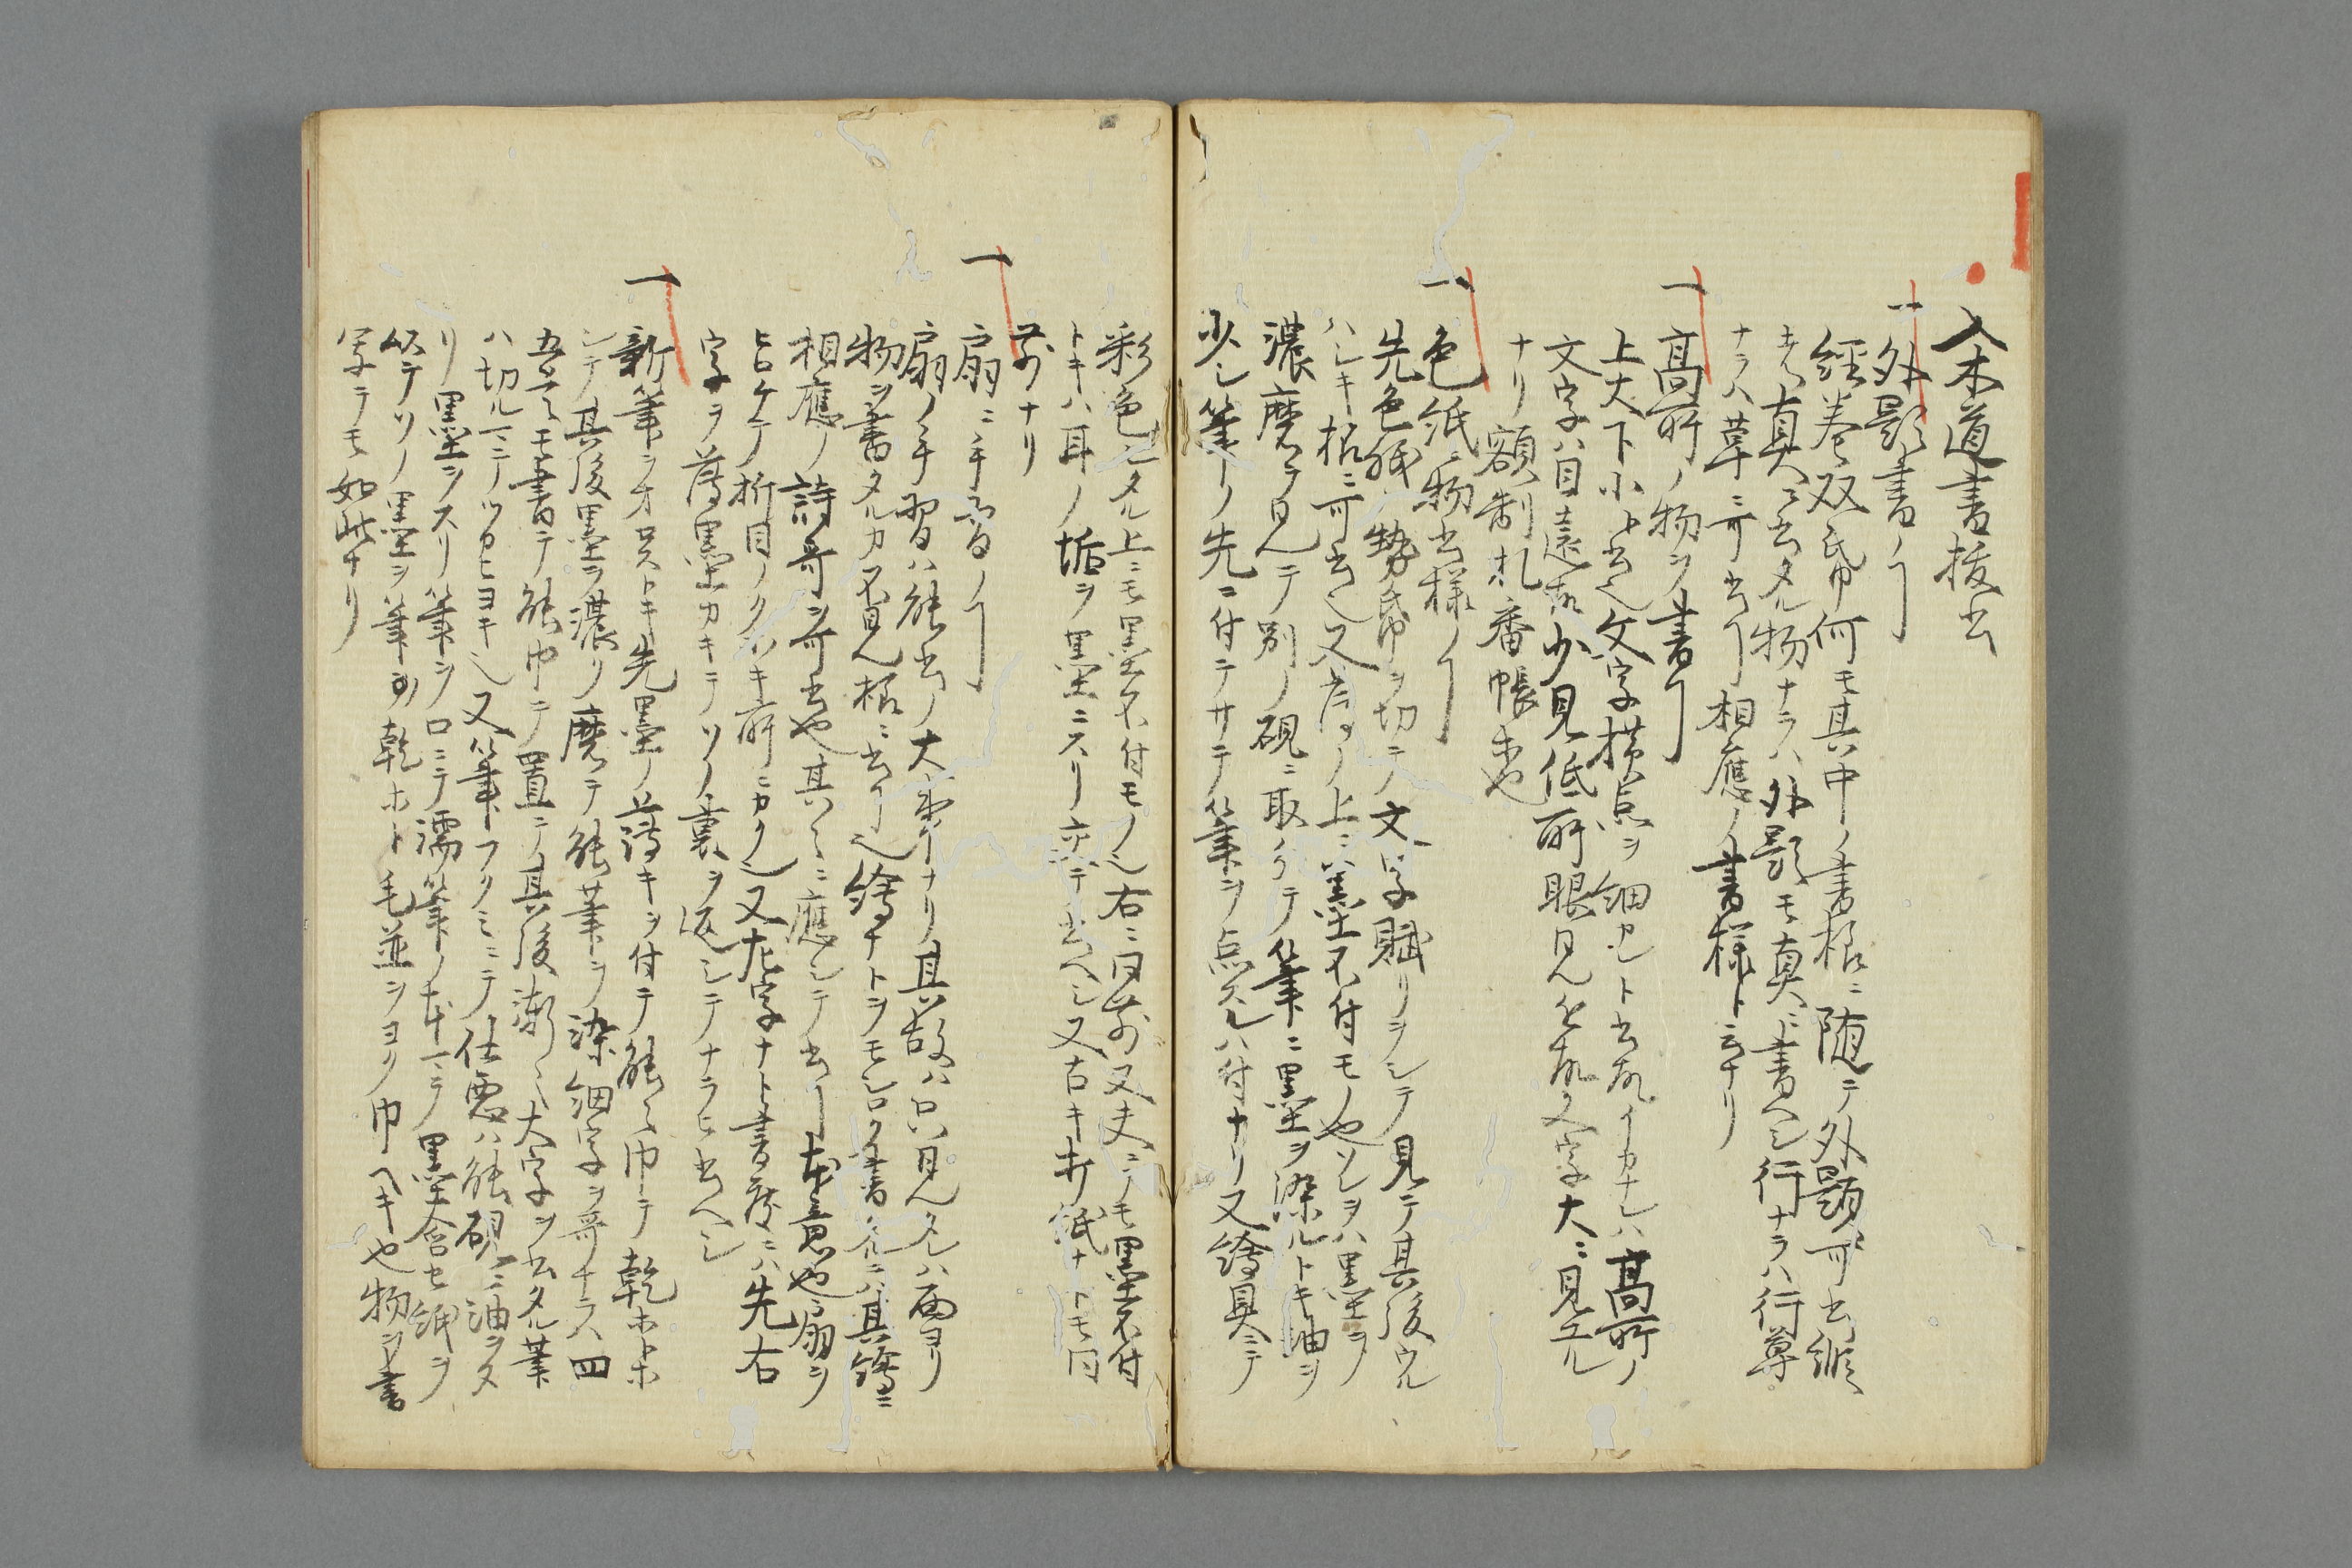 入木道書抜書
一外題書ヿ
經卷双帋何モ其中ノ書様ニ随テ外題可書縦
者真ニ書タル物ナラハ外題モ真ニ書ヘシ行ナラハ行草
ナラハ草ニ可書ヿ相應ノ書様ト云ナリ
一高所ノ物ヲ書ヿ
上大下小ト書也文字横点ヲ細クト書故イカナレハ高所ノ
文字ハ目遠故少見低所眼見近故文字大ニ見エル
ナリ額制札番帳等也
一色紙ニ物書様ノヿ
先色紙ノ勢帋ヲ切テ文字賦リヲシテ見テ其後ウル
ハシキ様ニ可書也又ノ上ニハ墨不付モノ也ソレヲハ墨ヲ
濃磨テ見テ別ノ硯ニ取分テ筆ニ墨ヲ染ルトキ油ヲ
少シ筆ノ先ニ付テサテ筆ヲ点スレハ付ナリ又繪具ニテ
彩色シタル上ニモ墨不付モノ也右ニ同前又夫ニテモ墨不付
トキハ耳ノ垢ヲ墨ニスリ交テ書ヘシ又古キ打紙ナトモ同
前ナリ
一扇ニ手習ノヿ
扇ノ手習ハ能書ノ大事ナリ其故ハ只見タレハ面ヨリ
物ヲ書タルカ不見様ニ書ヿ也繪ナトヲモシロク書タルニハ其繪ニ
相應ノ詩哥ヲ可書也其々ニ應シテ書ヿ本意也扇ヲ
ヒロケテ折目ノタカキ所ニカク也又九字ナト書度ニハ先右
字ヲ薄墨カキテソノ裏ヲ返シテナラヒ書ヘシ
一新筆ヲオロストキ先墨ノ薄キヲ付テ能々巾テ乾ホトホ
シテ其後墨ヲ濃ク磨テ能筆ヲ染細字ヲ哥ナラハ四
五首モ書テ能巾テ置テ其後漸々大字ヲ書タル筆
ハ切ルヽニテツカヒヨキ也又筆フクミニテ仕悪ハ能硯ニ油ヲタ
リ墨ヲスリ筆ヲ口ニテ濡筆ノ本マテ墨含セ紙ヲ
以テソノ墨ヲ筆ノ乾ホト毛並ヲヨク巾ヘキ也物ヲ書
写テモ如此ナリ